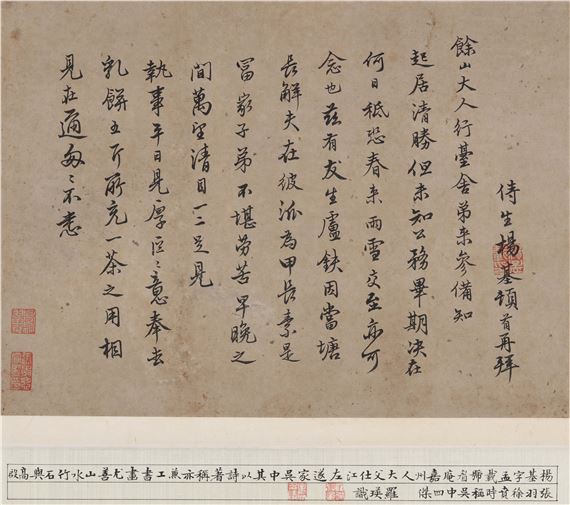 侍生楊基頓首再拜
餘山大人行臺舍弟來參備知
起居清勝但未知公務畢期決在
何日秪恐春來雨雪交至亦可
念也茲有友生盧鉄因當塘
長解夫在彼派為甲長素是
富家子弟不堪勞苦早晚之
間萬望清目一二足見
執事平日見厚區〻意奉去
乳餅五斤所充一茶之用相
見在邇匆〻不悉
楊基字孟載號眉庵嘉州人大父仕江左遂家吳中其以詩著稱亦兼工書畫尤善山水竹石與高啟
張羽徐賁時稱吳中四傑 羅瑛識